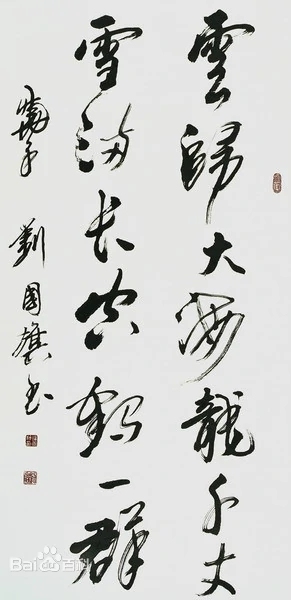 雲歸大海龍千丈
雪滿长空鶴一群
劉國雄书
Bai百科